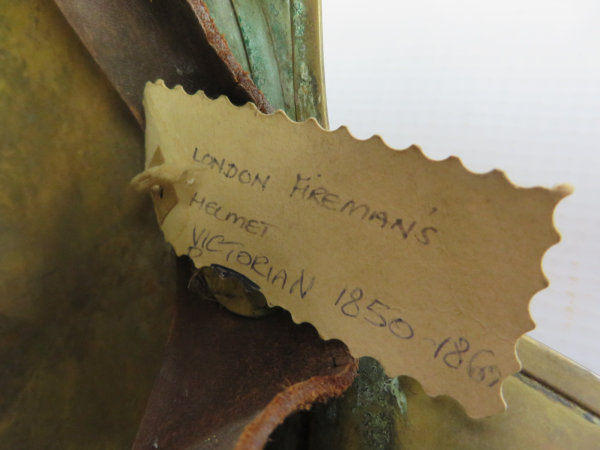 LONDON FIREMAN'S
HELMET
VICTORIAN 1850-1860